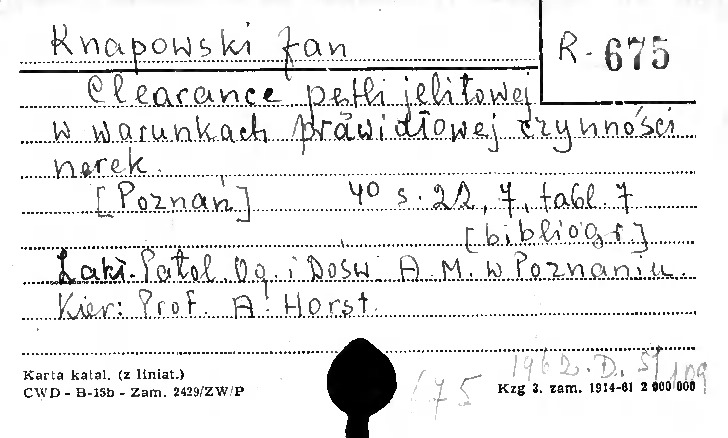 Knapowski Jan
R-675
Clearance pętli jelitowej
w warunkach prawidłowej czynności
nerek.
[Poznań] 40 s. 22, 7, tabl. 7
[bibliogr.]
Zakł. Patol. Og. i Dośw. A. M. w Poznaniu.
Kier: Prof. A. Horst.
1962. D. 59/109
675
Karta katal. (z liniat.)
CWD - B-15b - Zam. 2429/ZW/P
Kzg 3. zam. 1914-61 2 000 000